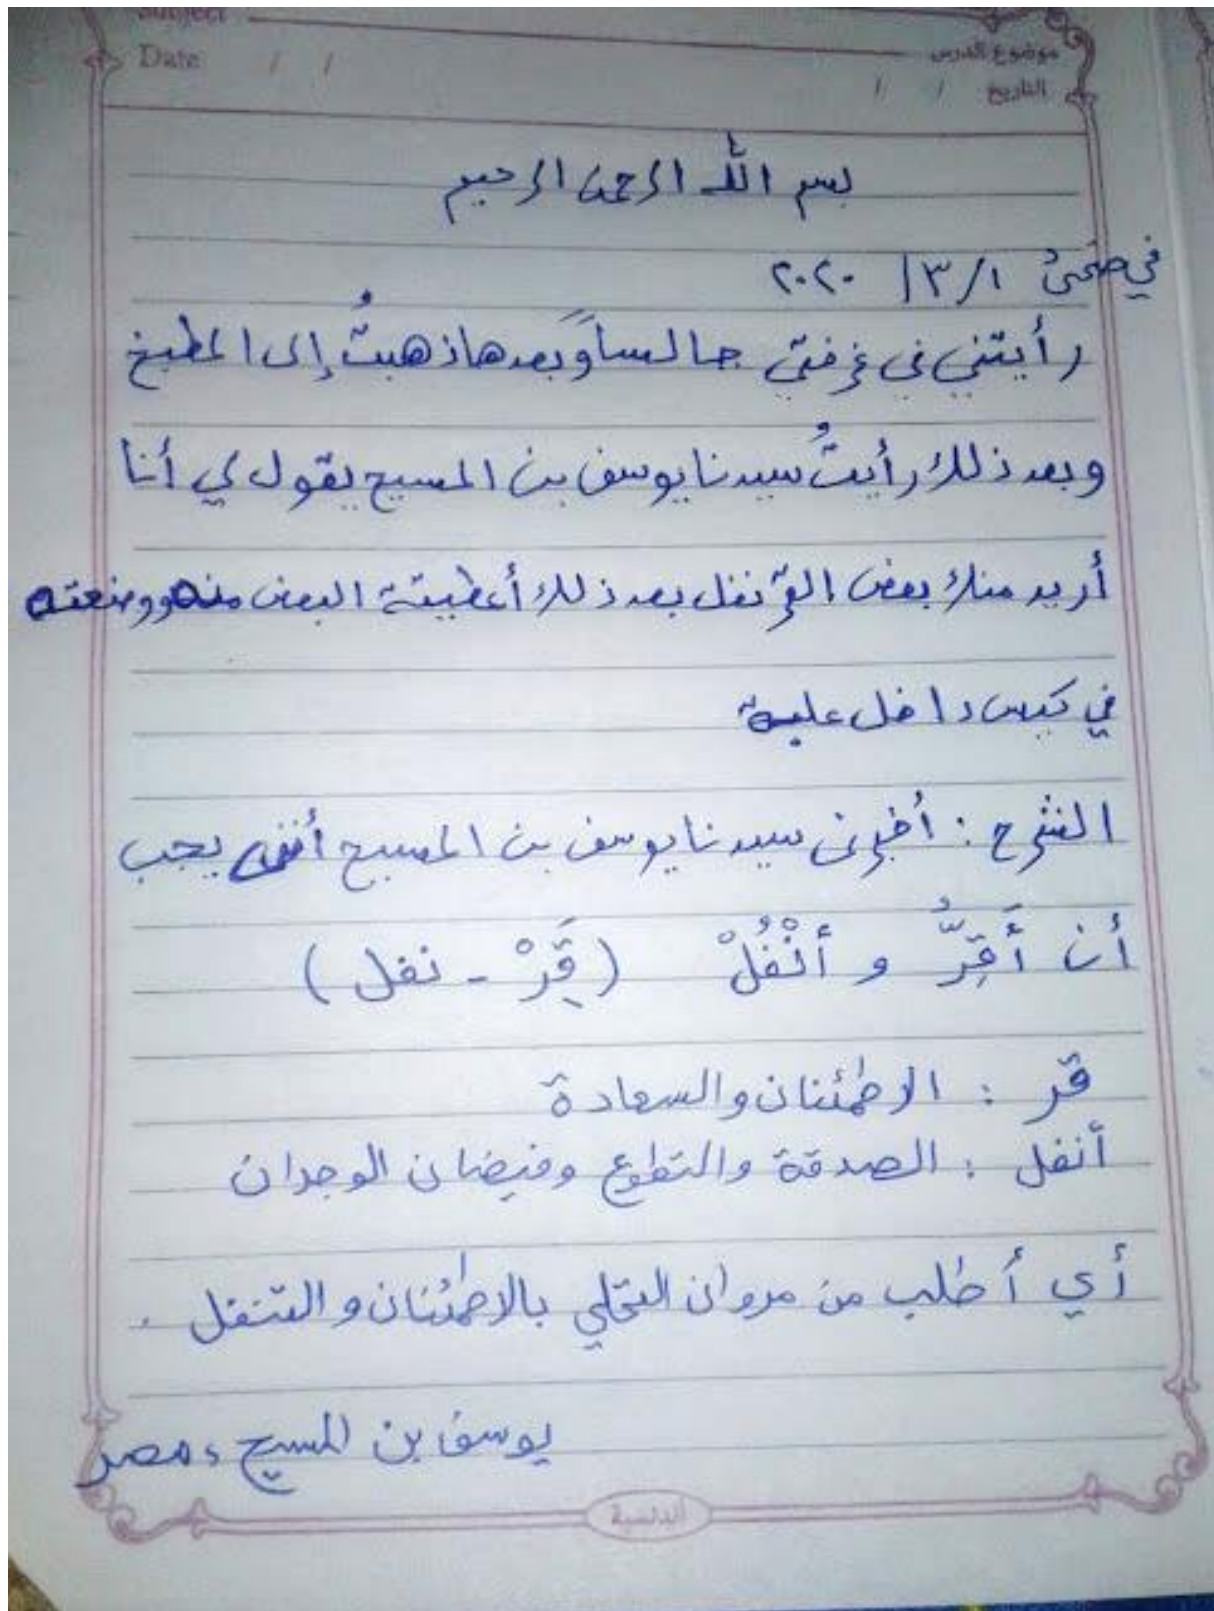 Subject
موضوع الدرس
Date / /
التاريخ / /
بسم الله الرحمن الرحيم
في ضحىٰ ١/٣/ ٢٠٢٠
رأيتني في غرفتي جالساً وَبعدها ذهبتُ إلى المطبخ
وبعد ذلك رأيتُ سيدنا يوسف بن المسيح يقول لي أنا
أريد منك بعض القرنفل بعد ذلك أعطيتة البعض منه ووضعته
في كيس داخل علبة
الشرح : أخبرني سيدنا يوسف بن المسيح أنني يجب
أن أَقِرُّ و أنْفُلْ (قَِرْ - نفل)
قر : الاطمئنان والسعادة
أنفل : الصدقة والتطوع وفيضان الوجدان
أي أطلب من مروان التحلي بالاطمئنان والتنفل .
يوسف بن المسيح ، مصر